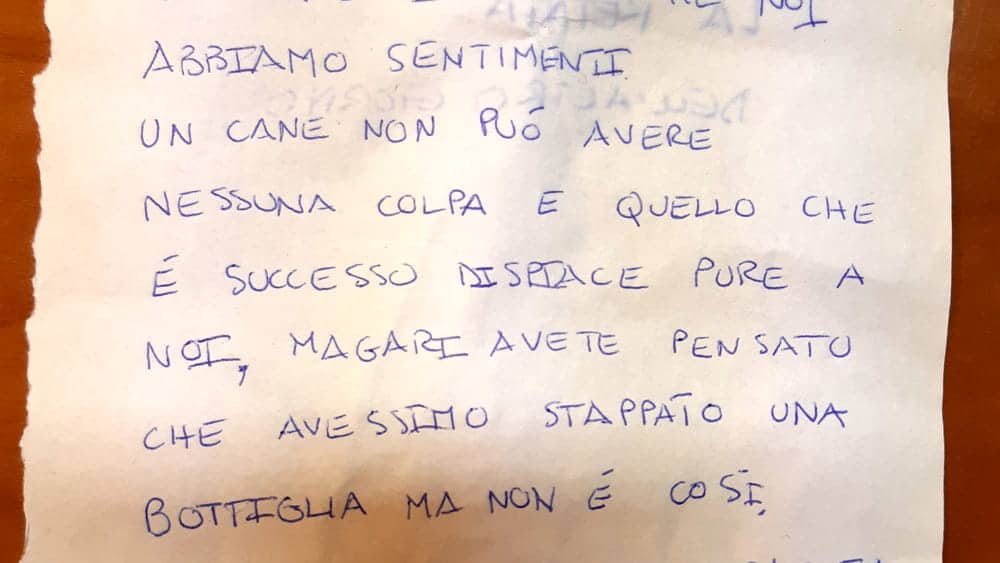 NOI
ABBIAMO SENTIMENTI
UN CANE NON PUÓ AVERE
NESSUNA COLPA E QUELLO CHE
É SUCCESSO DISPIACE PURE A
NOI, MAGARI AVETE PENSATO
CHE AVESSIMO STAPPATO UNA
BOTTIGLIA MA NON É COSÌ,